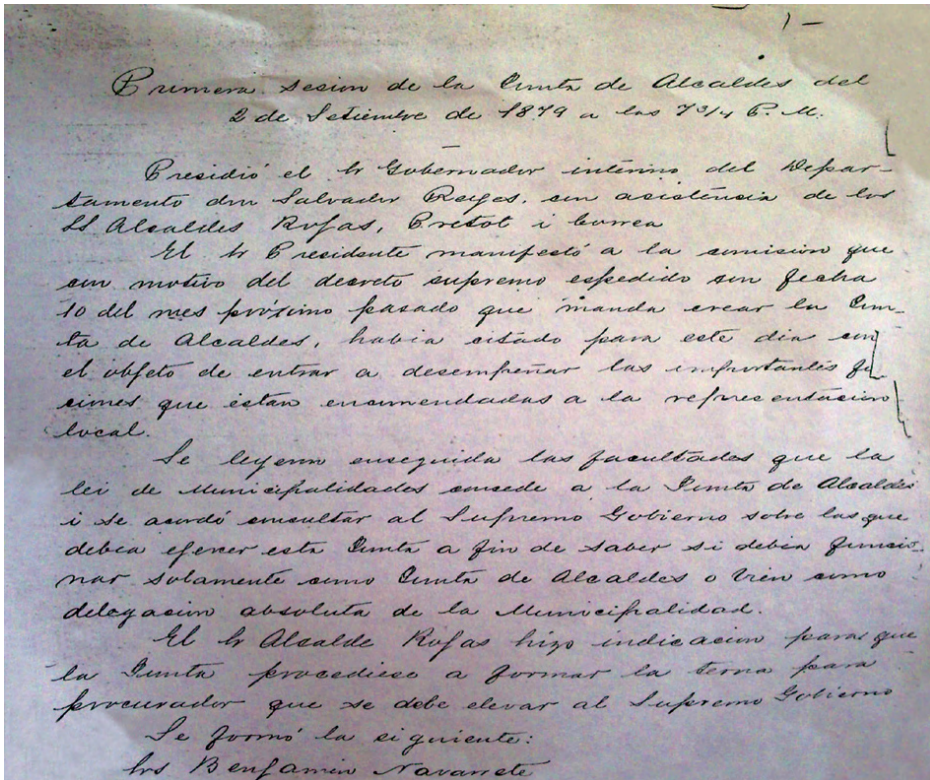 1 –
Primera sesion de la Junta de Alcaldes del
2 de Setiembre de 1879 a las 7 3/4 P. M.
Presidió el Sr Gobernador interino del Depar-
tamento don Salvador Reyes, con asistencia de los
SS Alcaldes Rojas, Pretot i Correa
El Sr Presidente manifestó a la comision que
con motivo del decreto supremo espedido con fecha
10 del mes próximo pasado que manda crear la Jun-
ta de Alcaldes, habia citado para este dia con
el objeto de entrar a desempeñar las importantes
ciones que estan encomendadas a la representacion
local.
Se leyeron enseguida las facultades que la
lei de Municipalidades concede a la Junta de Alcaldes
i se acordó consultar al Supremo Gobierno sobre las que
debia ejercer esta Junta a fin de saber si debia funcio-
nar solamente como Junta de Alcaldes o bien como
delegacion absoluta de la Municipalidad.
El Sr Alcalde Rojas hizo indicacion para que
la Junta procediese a formar la terna para
procurador que se debe elevar al Supremo Gobierno
Se formó la siguiente:
Srs Benjamin Navarrete